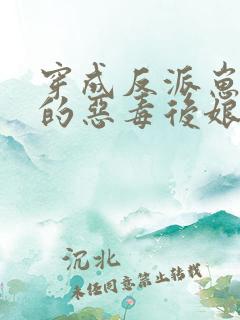 穿成反派崽
的恶毒後娘
沉北
未经同意禁止转载